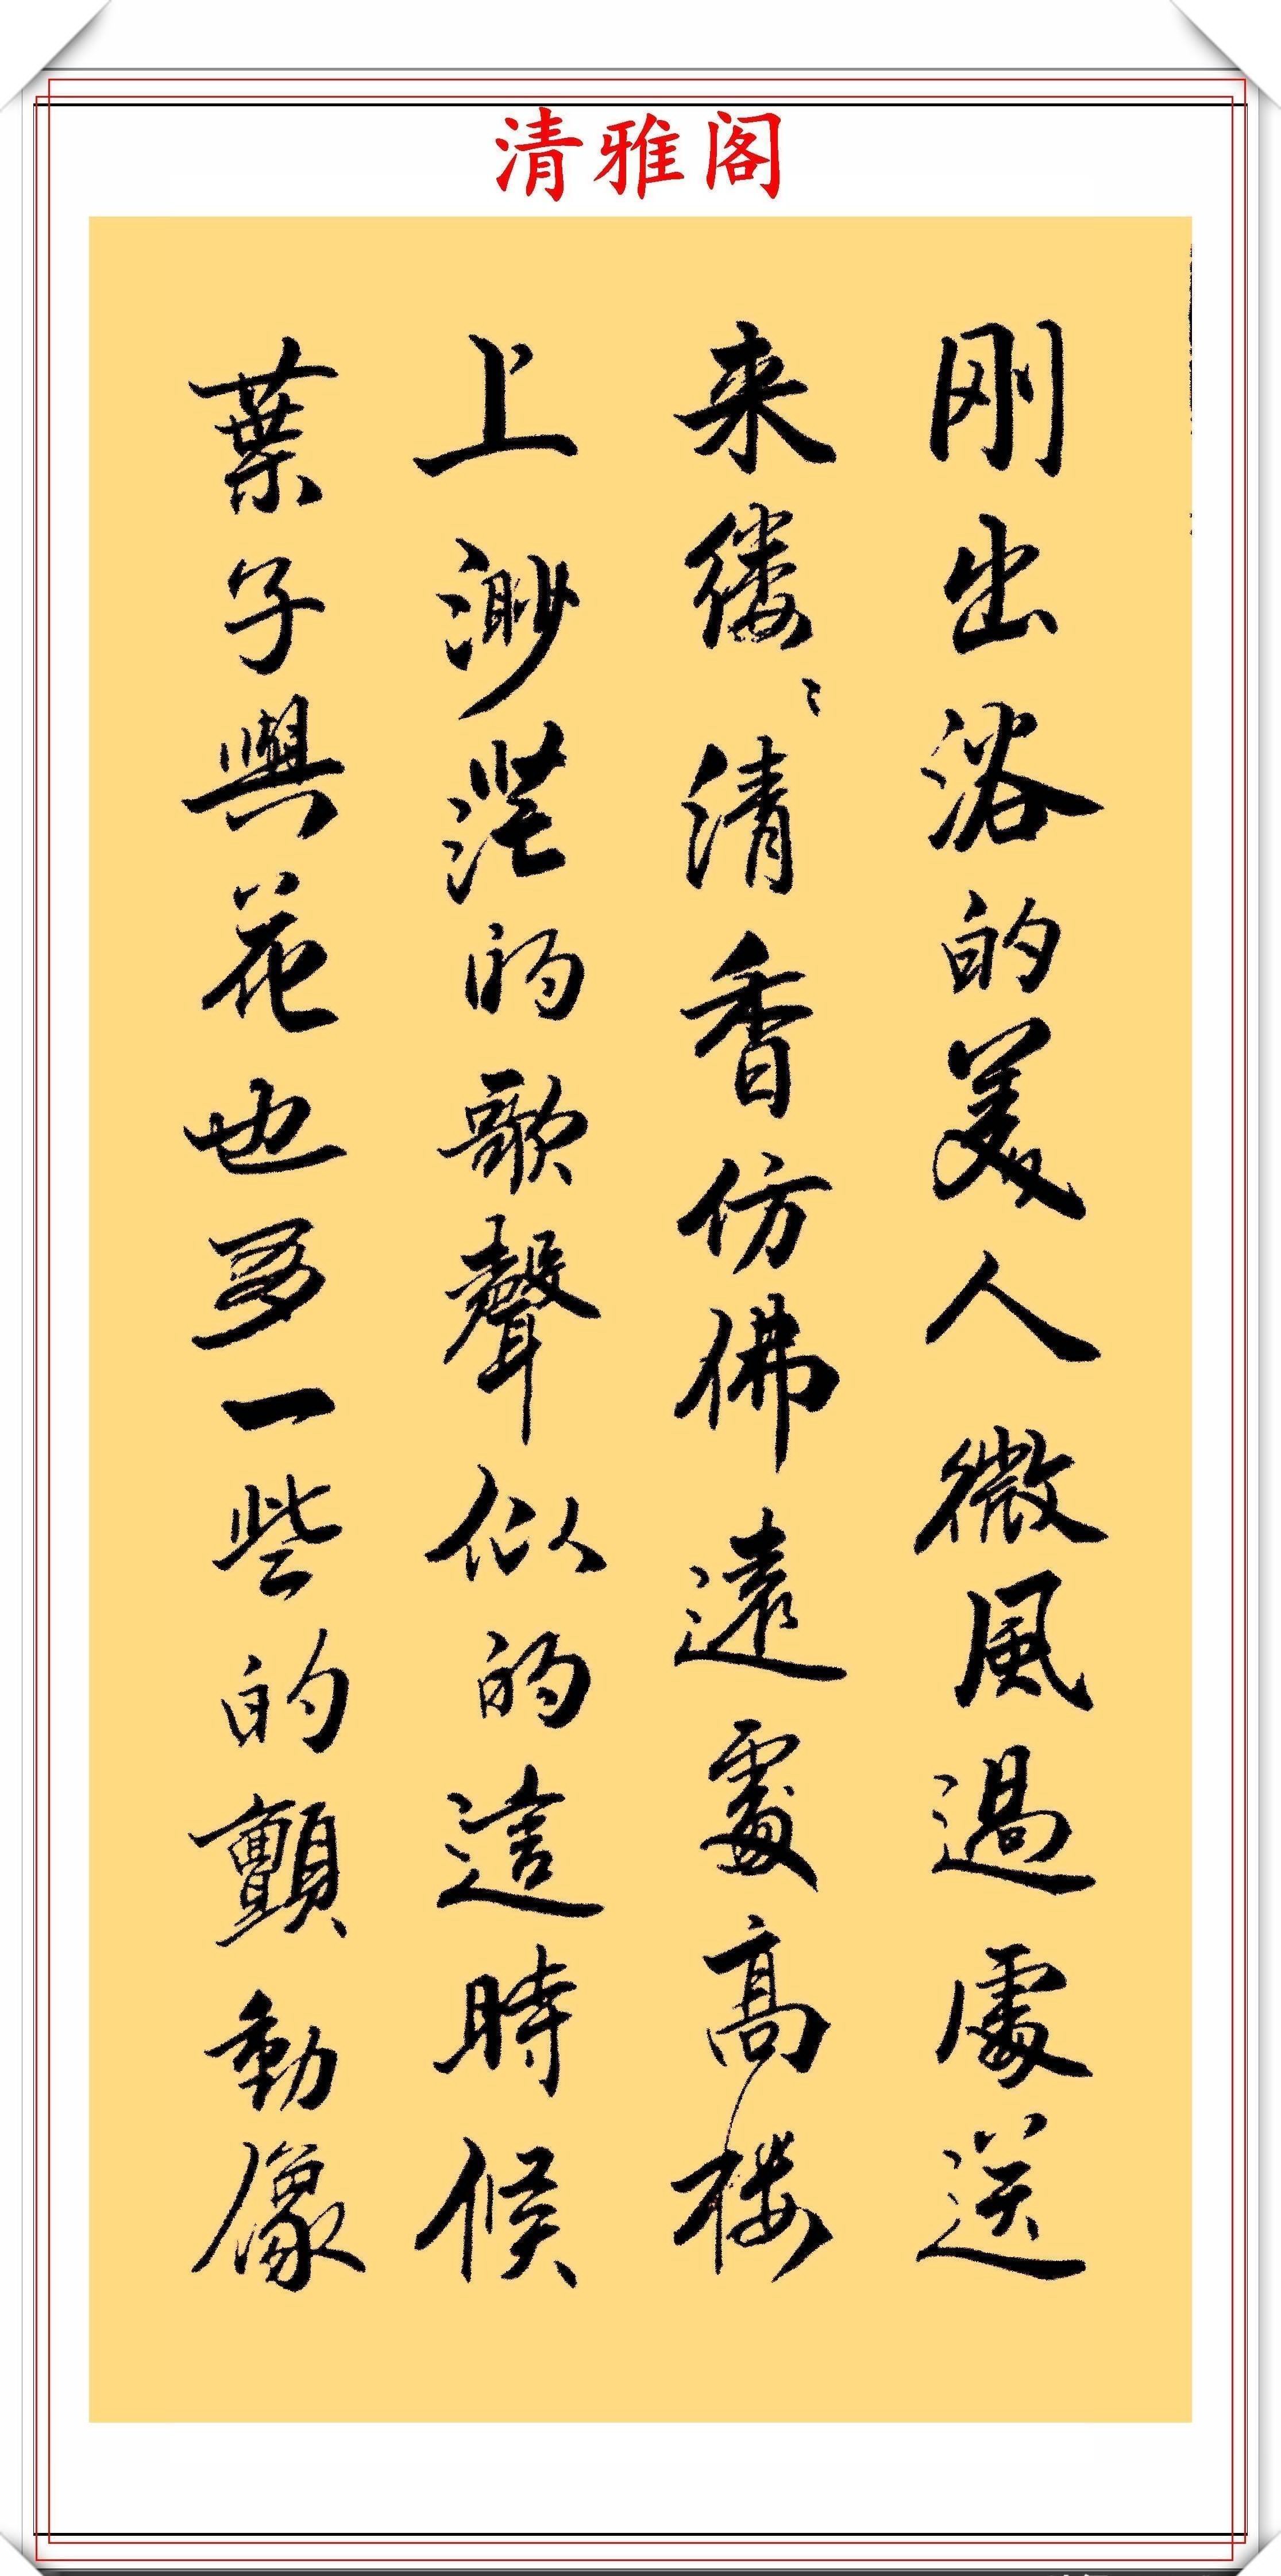 清雅阁
刚出浴的美人微风過處送
来缕〻清香仿佛遠處高楼
上渺茫的歌聲似的這時候
葉子與花也多一些的顫動像